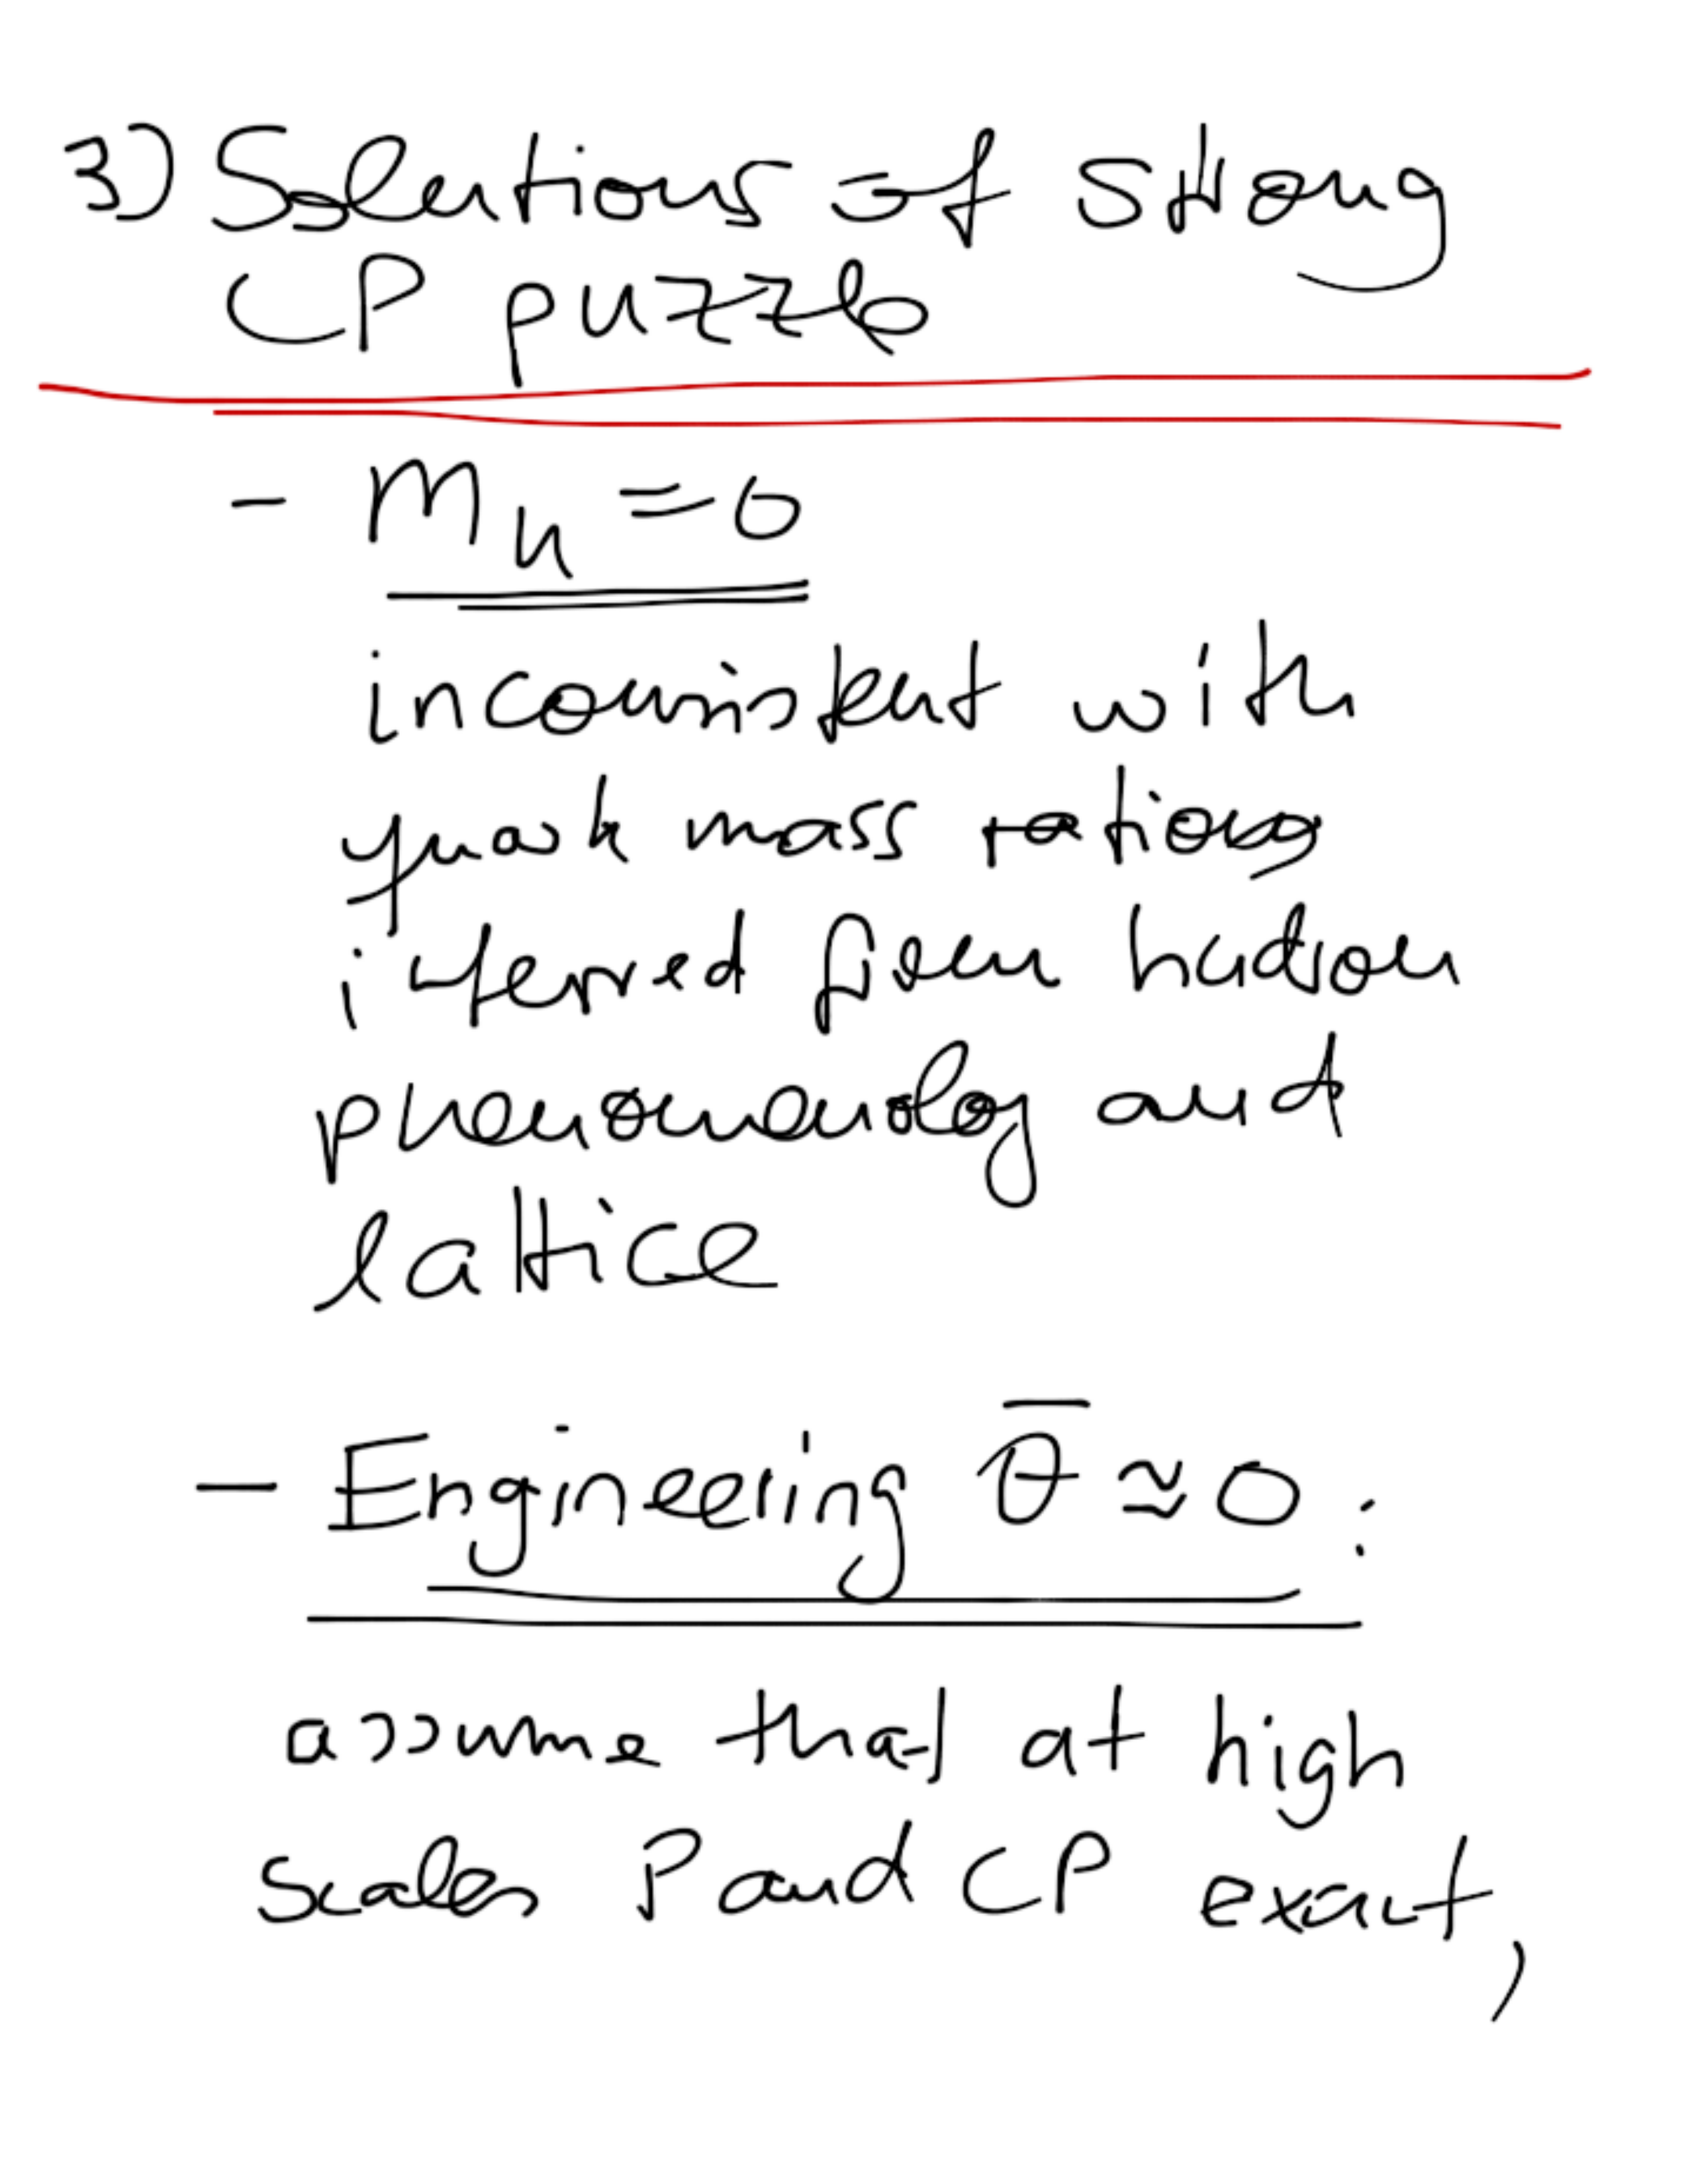 3) Solutions of strong
CP puzzle
- m_u = 0
inconsistent with
quark mass ratios
inferred from hadron
phenomenology and
lattice
- Engineering θ̅ ≈ 0 :
assume that at high
scales P and CP exact,